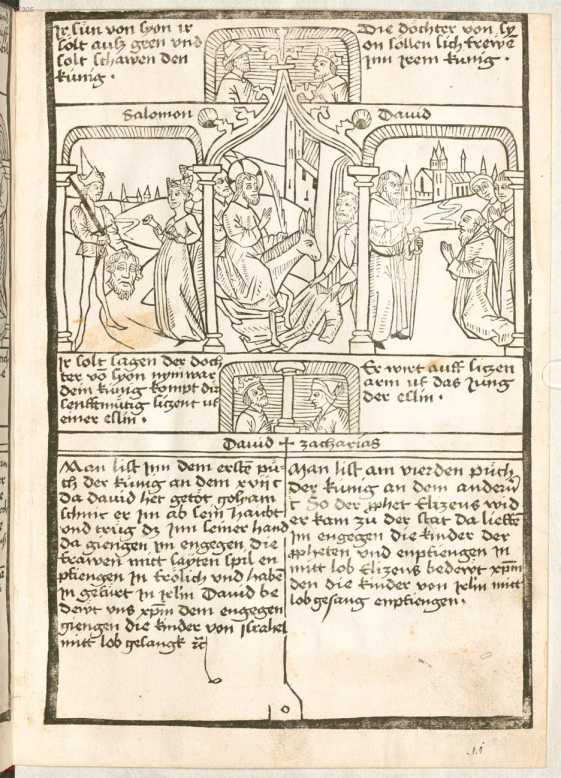 Ir sün von syon ir
solt ausz geen und
solt schawen den
künig .
Die döchter von sy
on söllen sich frewē
Inn Irem künig .
Salomon
David
Ir solt sagen der doch
ter vō syon nym war
dein künig kompt dir
senfftmütig siczent uf
einer eslin .
Er wirt auff siczen
arm uf das Jung
der eslin .
David + zacharias
Man list Inn dem erstē pü
ch der künig an dem xvijc
da david het getöt goliam
schnit er Im ab sein haubt
und trüg dz Inn seiner hand
da giengen im engegen die
frawen mitt sayten spil en
pfiengen In frölich und habē
In gefürt In irlm David be
dewt uns xp̄m dem engegen
giengen die kinder von Israhel
mitt lob gesangk ꝛc
Man list am vierden püch
der künig an dem andern
c So der ꝓphet Elizeus wid
er kam zu der stat da lieffē
Im engegen die kinder der
ꝓpheten und enpfiengen in
mitt lob Elizeus bedewt xp̄m
den die kinder von irlm mitt
lobgesang enpfiengen .
o